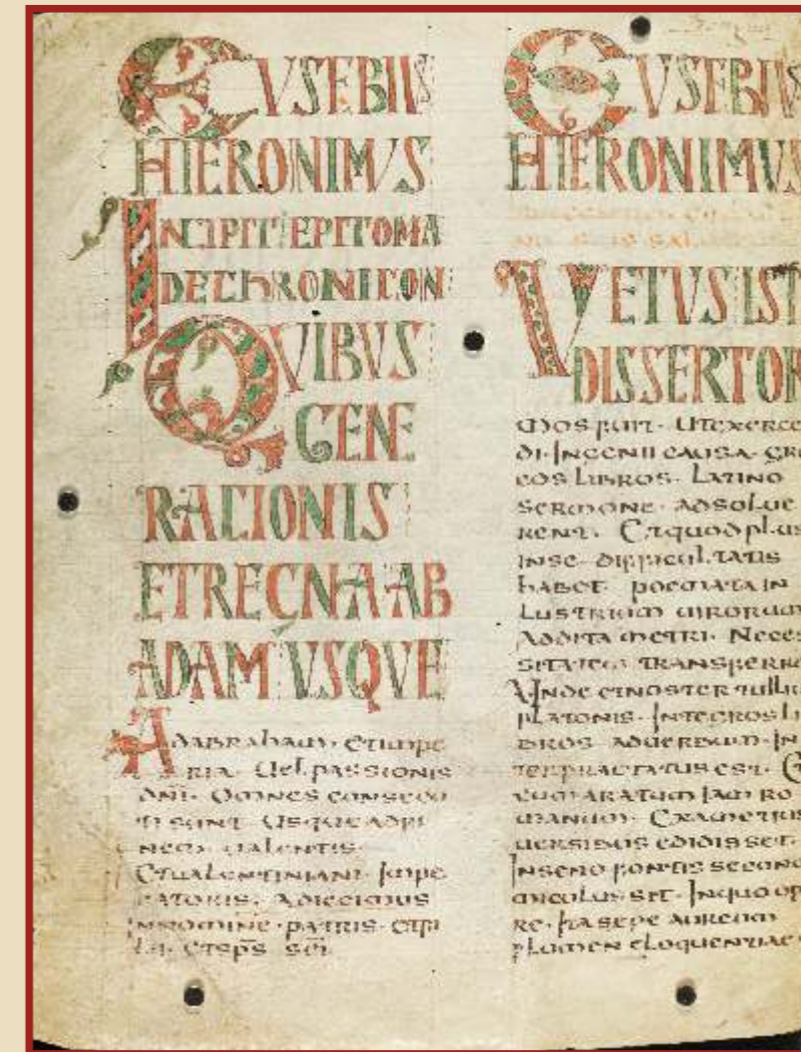 EVSEBIVS
HIERONIMVS
INCIPIT EPITOMA
DE CHRONICON
QVIBVS
GENE
RATIONIS
ET REGNA AB
ADAM VSQVE
Ad abraham. et impe
ria. Uel passionis
dn̄i. Omnes consecu
ti sunt. Usque ad fi
nem ualentis.
Et ualentiniani. Impe
ratoris. Adiecimus
In nomine. patris. et fi
lii. et sp̄s sc̄i
EVSEBIVS
HIERONIMVS
VETVS IST
DISSERTOR
mos fuit. Ut exerce
di. Ingenii causa. gre
cos Libros. Latino
sermone. absolue
rent. Et quod plus
in se difficultatis
habet. poemata in
lustrium uirorum
Addita metri. Neces
sitatem transferre
Unde et noster tulliu
platonis. Integros Li
bros ad uerbum. In
terpraetatus est. Et
cum aratum Iam ro
manum. Exametris
uersibus edidisset.
fontis
sit. In quo op
re. Ita sepe aureum
flumen eloquentiae